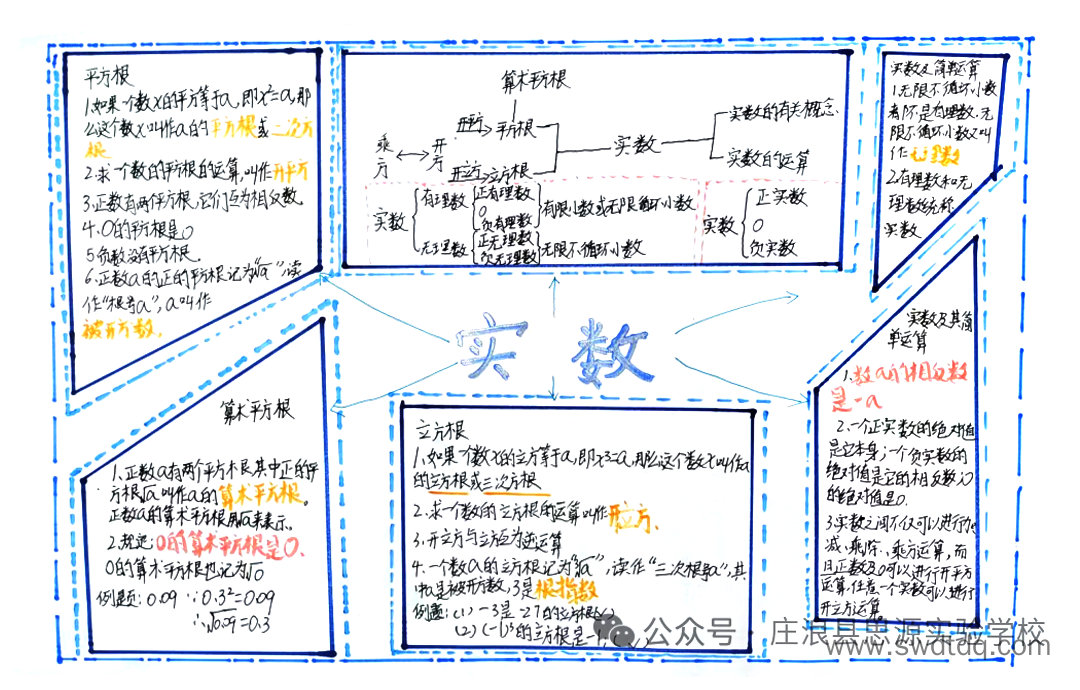 平方根
1.如果一个数x的平方等于a,即x²=a,那
么这个数x叫作a的平方根或二次方
根
2.求一个数的平方根的运算,叫作开平方
3.正数有两个平方根,它们互为相反数.
4.0的平方根是0
5负数没有平方根.
6.正数a的正的平方根记为"√a",读
作"根号a",a叫作
被开方数.
算术平方根
乘方
开方
开平方
平方根
开立方
立方根
实数
实数的有关概念
实数的运算
实数
有理数
正有理数
0
负有理数
有限小数或无限循环小数
无理数
正无理数
负无理数
无限不循环小数
实数
正实数
0
负实数
实数及简单运算
1.无限不循环小数
都不是有理数.无
限不循环小数又叫
作无理数
2.有理数和无
理数统称
实数
实数
算术平方根
1.正数a有两个平方根其中正的平
方根√a叫作a的算术平方根。
正数a的算术平方根用√a来表示。
2.规定:0的算术平方根是0.
0的算术平方根也记为√0
例题:0.09 ∵0.3²=0.09
∴√0.09=0.3
立方根
1.如果一个数x的立方等于a,即x³=a,那么这个数x叫作a
的立方根或三次方根
2.求一个数的立方根的运算叫作开立方.
3.开立方与立方互为逆运算
4.一个数a的立方根记为"³√a",读作"三次根号a",其
中a是被开方数,3是根指数
例题:(1)-3是-27的立方根(√)
(2)(-1)³的立方根是-1
实数及其简
单运算
1.数a的相反数
是-a
2.一个正实数的绝对值
是它本身;一个负实数的
绝对值是它的相反数;0
的绝对值是0.
3.实数之间不仅可以进行加
减、乘除、乘方运算,而
且正数及0可以进行开平方
运算,任意一个实数可以进行
开立方运算
公众号·庄浪县思源实验学校
www.swdtdq.com